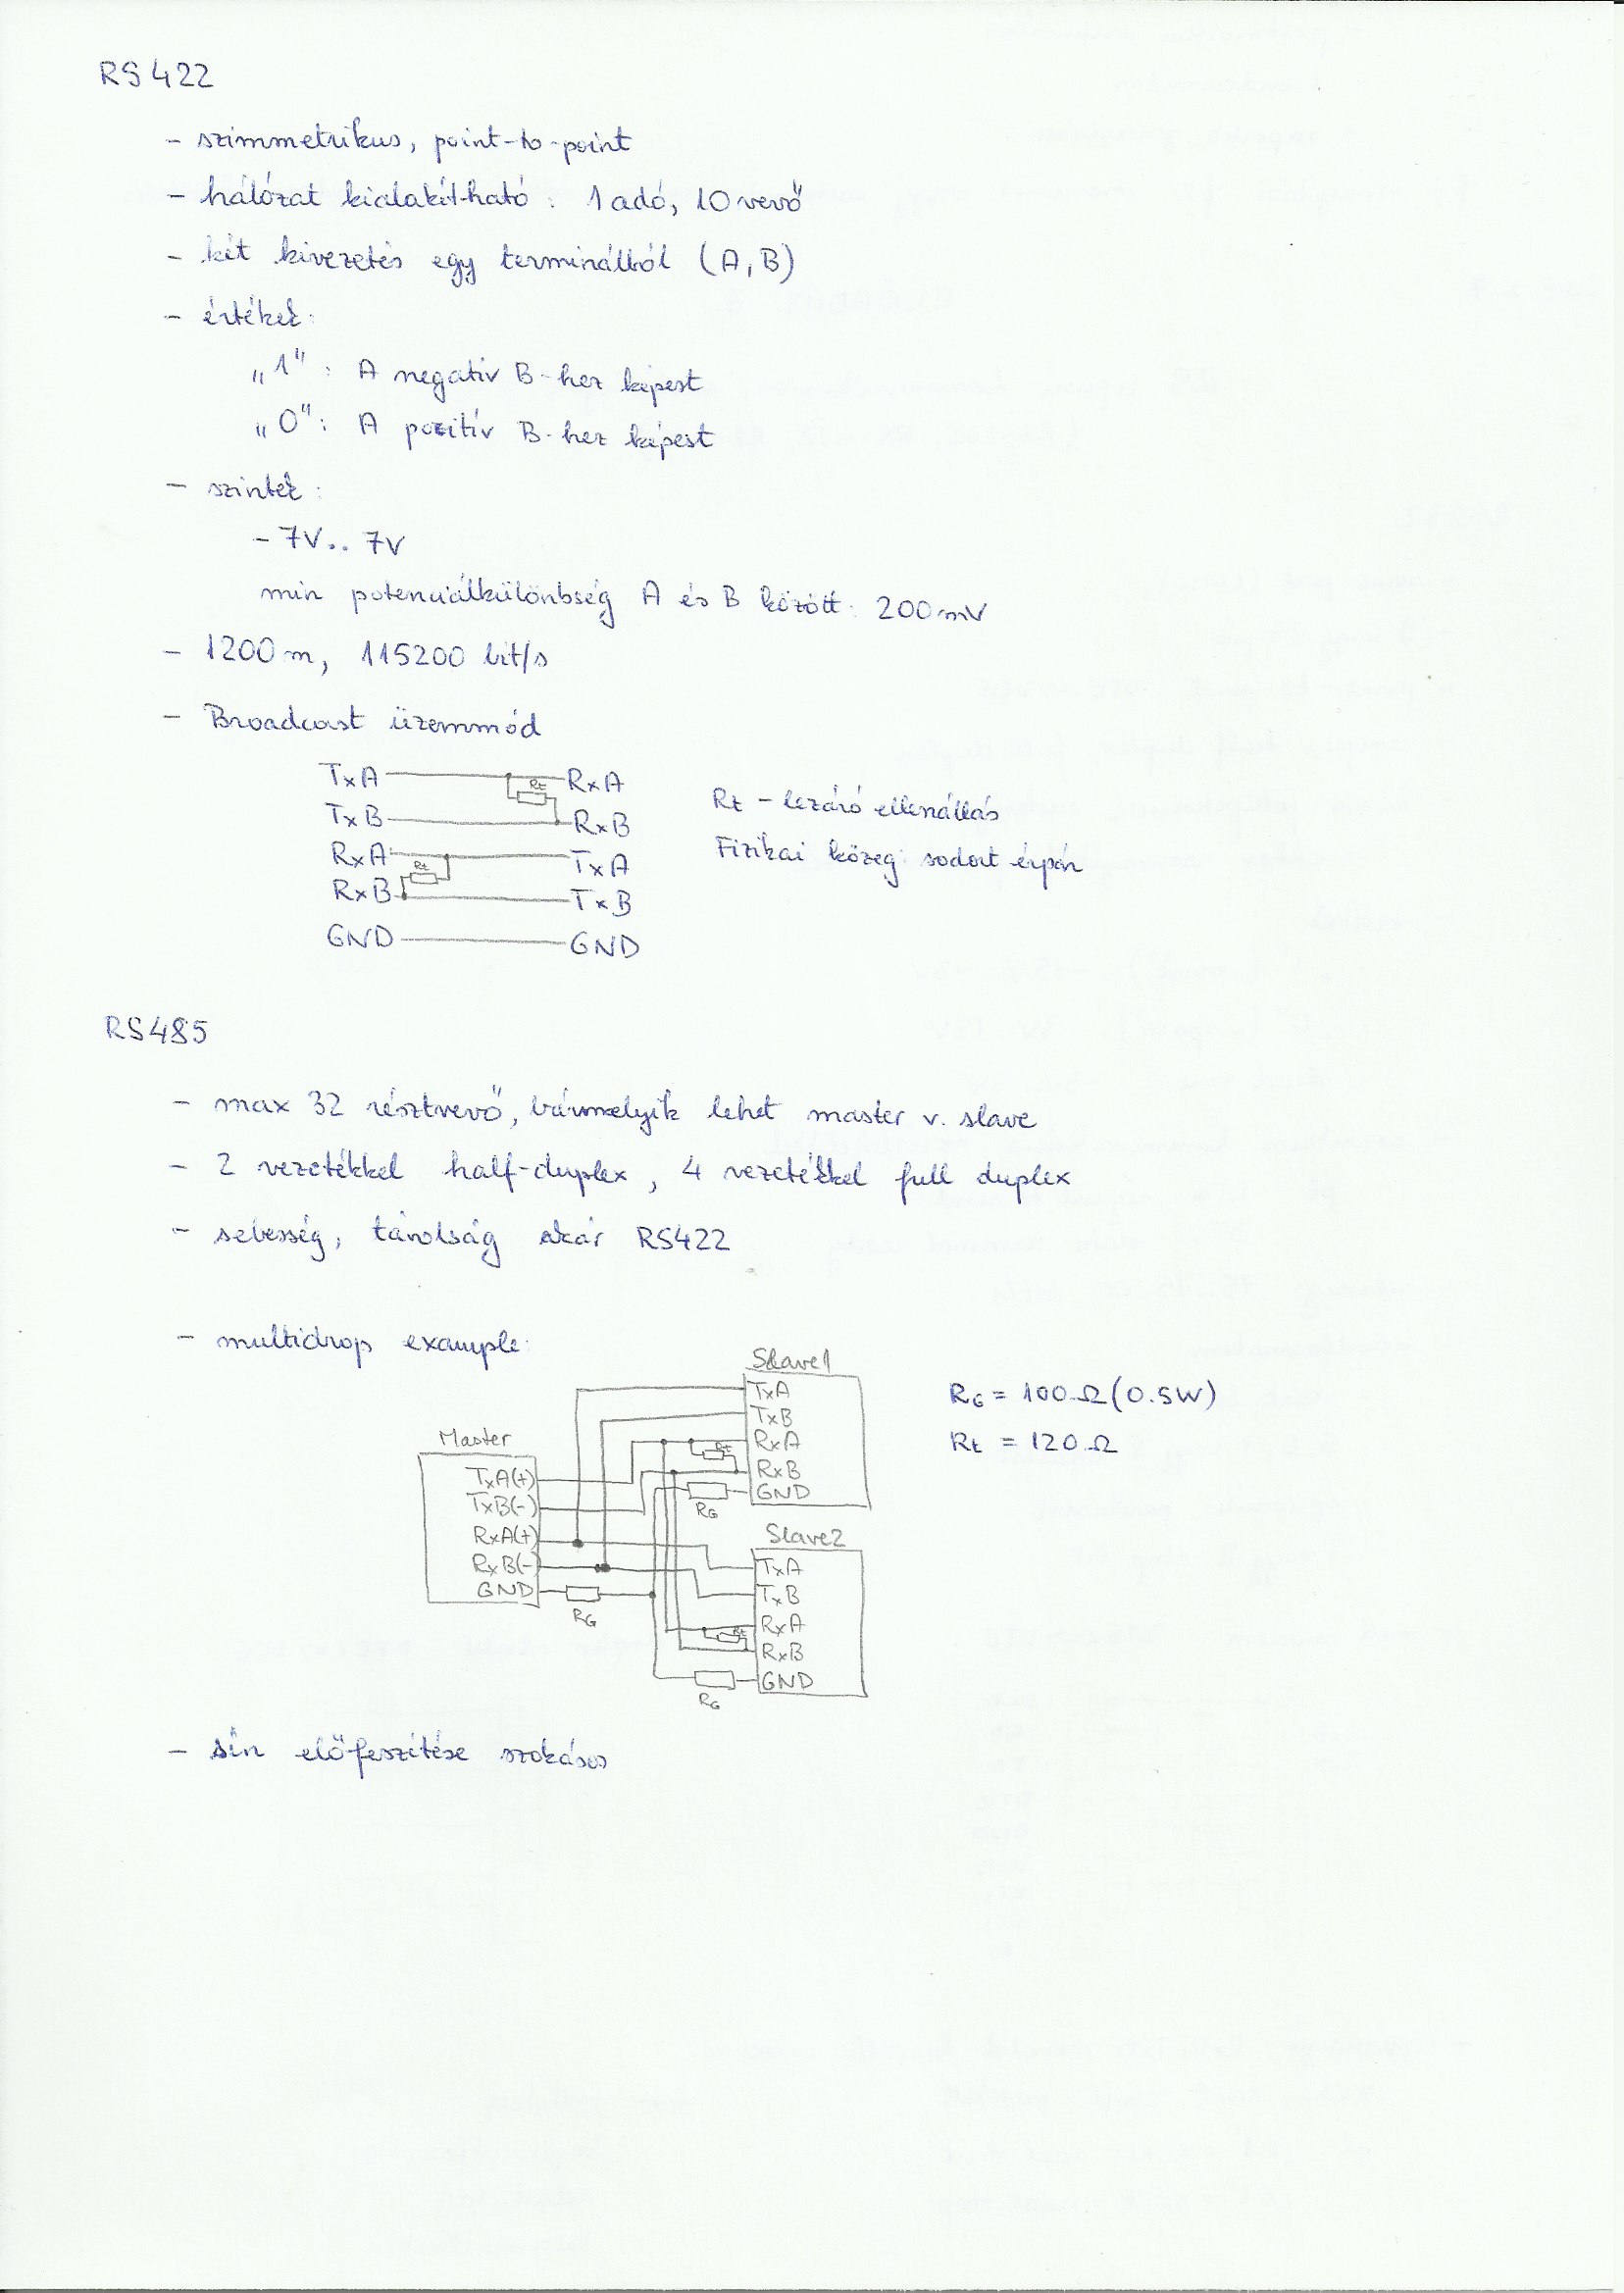 RS422
- szimmetrikus, point-to-point
- hálózat kialakítható: 1 adó, 10 vevő
- két kivezetés egy terminálból (A,B)
- értékek:
„1": A negatív B-hez képest
„0": A pozitív B-hez képest
- szintek:
-7V.. 7V
min potenciálkülönbség A és B között: 200mV
- 1200m, 115200 bit/s
- Broadcast üzemmód
TxA RxA
Rt
TxB RxB
RxA TxA
Rt
RxB TxB
GND GND
Rt - lezáró ellenállás
Fizikai közeg: sodort érpár
RS485
- max 32 résztvevő, bármelyik lehet master v. slave
- 2 vezetékkel half-duplex, 4 vezetékkel full duplex
- sebesség, távolság akár RS422
- multidrop example:
Slave1
TxA
TxB
RxA
Rt
RxB
GND
RG
Master
TxA(+)
TxB(-)
RxA(+)
RxB(-)
GND
RG
Slave2
TxA
TxB
RxA
Rt
RxB
GND
RG
RG = 100Ω (0.5W)
Rt = 120Ω
- sín előfeszítése szokásos